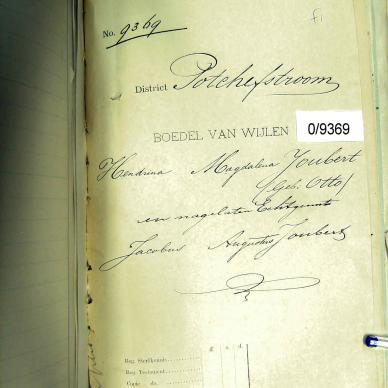 f1
No. 9369
District Potchefstroom
BOEDEL VAN WIJLEN
0/9369
Hendrina Magdalena Joubert
(Geb: Otto)
en nagelaten Echtgenoot
Jacobus Augustus Joubert
£ s. d.
Reg. Sterfkennis
Reg. Testament
Copie do.